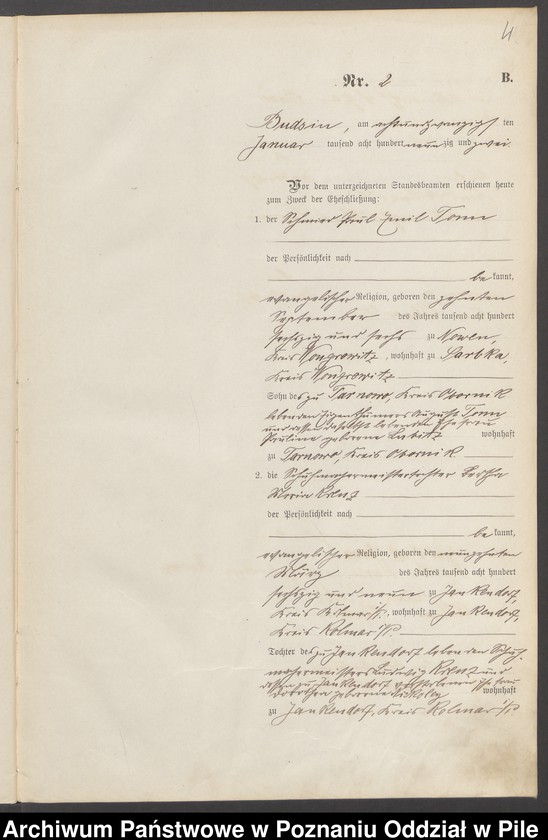 4
Nr. 2 B.
Budsin, am achtundzwanzigsten
Januar tausend acht hundert neunzig und zwei.
Vor dem unterzeichneten Standesbeamten erschienen heute
zum Zweck der Eheschließung:
1. der Schmied Paul Emil Tonn
der Persönlichkeit nach
bekannt,
evangelischer Religion, geboren den zehnten
September des Jahres tausend acht hundert
sechszig und sechs zu Nowen,
Kreis Wongrowitz, wohnhaft zu Sarbka,
Kreis Wongrowitz
Sohn des zu Tarnowo, Kreis Obornik
lebenden Eigenthümers August Tonn
und dessen daselbst lebenden Ehefrau
Pauline geborene wohnhaft
zu Tarnowo, Kreis Obornik
2. die Schuhmachermeistertochter Bertha
Maria
der Persönlichkeit nach
bekannt,
evangelischer Religion, geboren den neunzehnten
März des Jahres tausend acht hundert
sechszig und neun zu Jankendorf,
Kreis Kolmar i/P., wohnhaft zu Jankendorf,
Kreis Kolmar i/P.
Tochter des zu Jankendorf lebenden Schuh-
machermeisters Ludwig und
dessen zu Jankendorf verstorbenen Ehefrau
Dorothea geborene wohnhaft
zu Jankendorf, Kreis Kolmar i/P
Archiwum Państwowe w Poznaniu Oddział w Pile